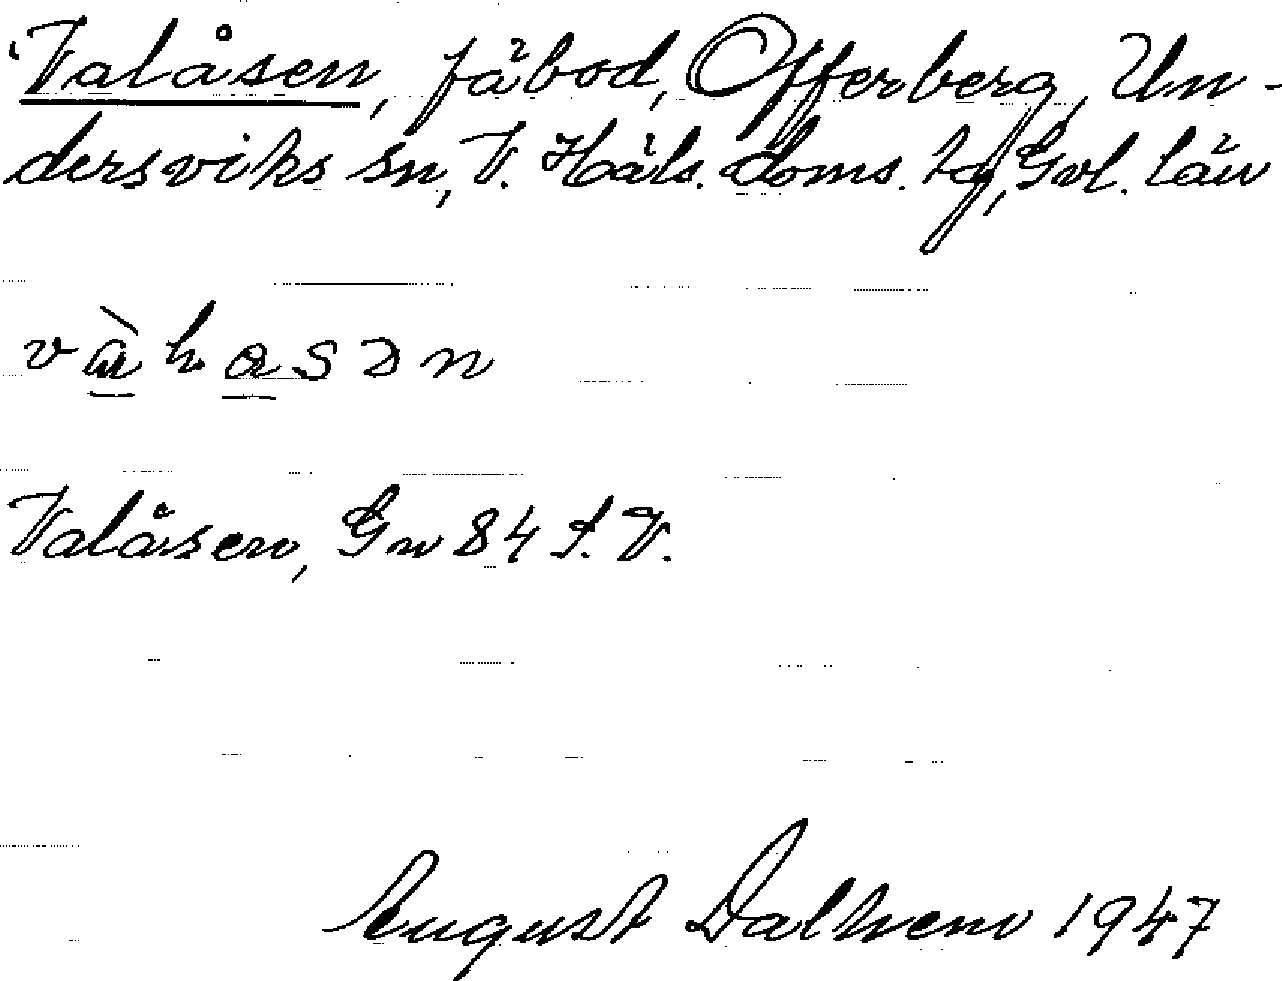 Valåsen, fäbod, Offerberg, Un-
dersviks sn, V. Häls. doms. tg, Gvl. län
Valåsen, Gn 84 S.V.
August Dalhem 1947